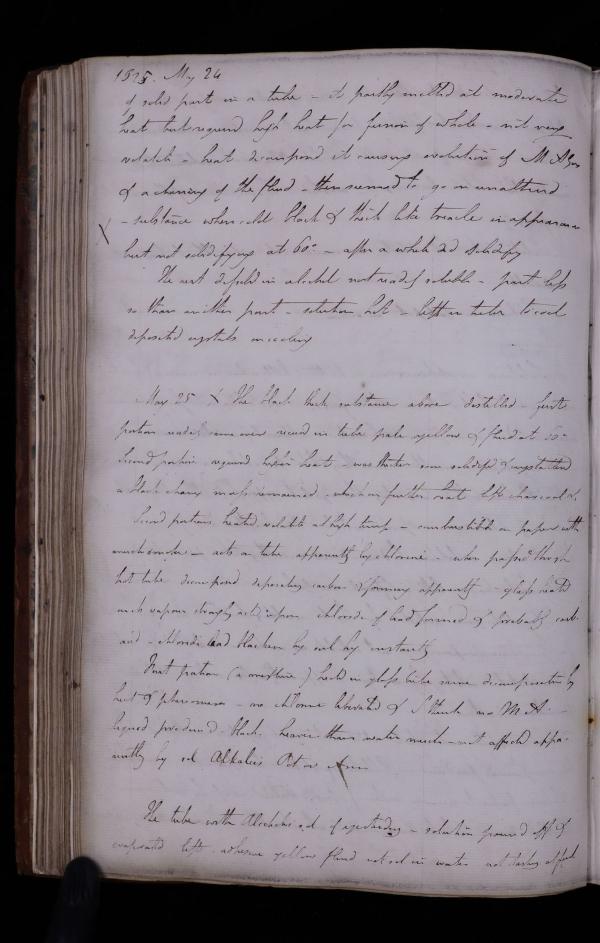 1825. May 24
of solid part in a tube - it partly melted at moderate
heat but required high heat for fusion of whole - not very
volatile - heat decomposed it causing evolution of M A gas
& a charring of the fluid - then seemed to go on unaltered
- substance when cold black & thick like treacle in appearance
X but not solidifying at 60° - after a while did solidify
The rest dissolved in alcohol not readily soluble - part less
so than another part - solution hot - left in tube to cool
deposited crystals on cooling
May 25 X The black thick substance above distilled - first
portion came over recd in tube pale yellow & fluid at 60°
Second portion required higher heat - was thicker soon solidified & crystallized
a black mass remained which on further heat left charcoal &
Second portions heated volatile at high temp - combustible on paper with
much smoke - acts on tube apparently by chlorine - when passed through
hot tube decomposed depositing carbon & forming apparently - glass heated
in vapour strongly acted upon chloride of lead formed & probably carb
acid - chloride lead blacken by sul hy instantly
First portion (as overleaf) held in glass tube same decomposition by
heat & phenomena - no chlorine liberated & I think no M A -
liquid produced - black, heavier than water much - not affected appa-
rently by sol Alkalies Pot or Am
The tube with Alcoholic sol of yesterday - solution poured off &
evaporated left adhesive yellow fluid not sol in water not tasting